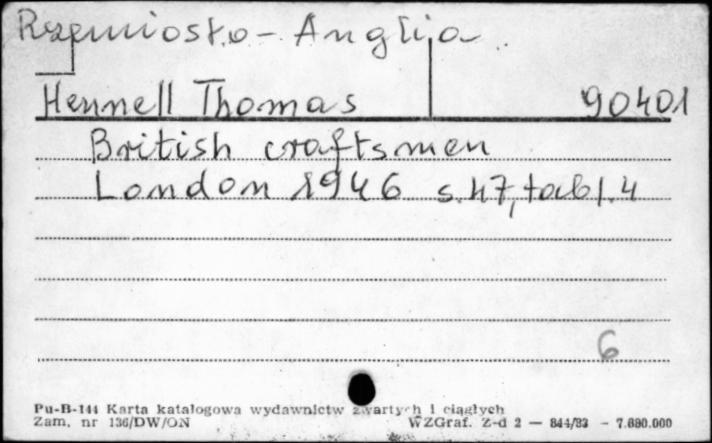 Rzemiosło - Anglia
Hennell Thomas 90401
British craftsmen
London 1946 s. 47, tabl. 4
6
Pu-B-144 Karta katalogowa wydawnictw zwartych i ciągłych
Zam. nr 136/DW/ON WZGraf. Z-d 2 — 844/83 - 7.680.000